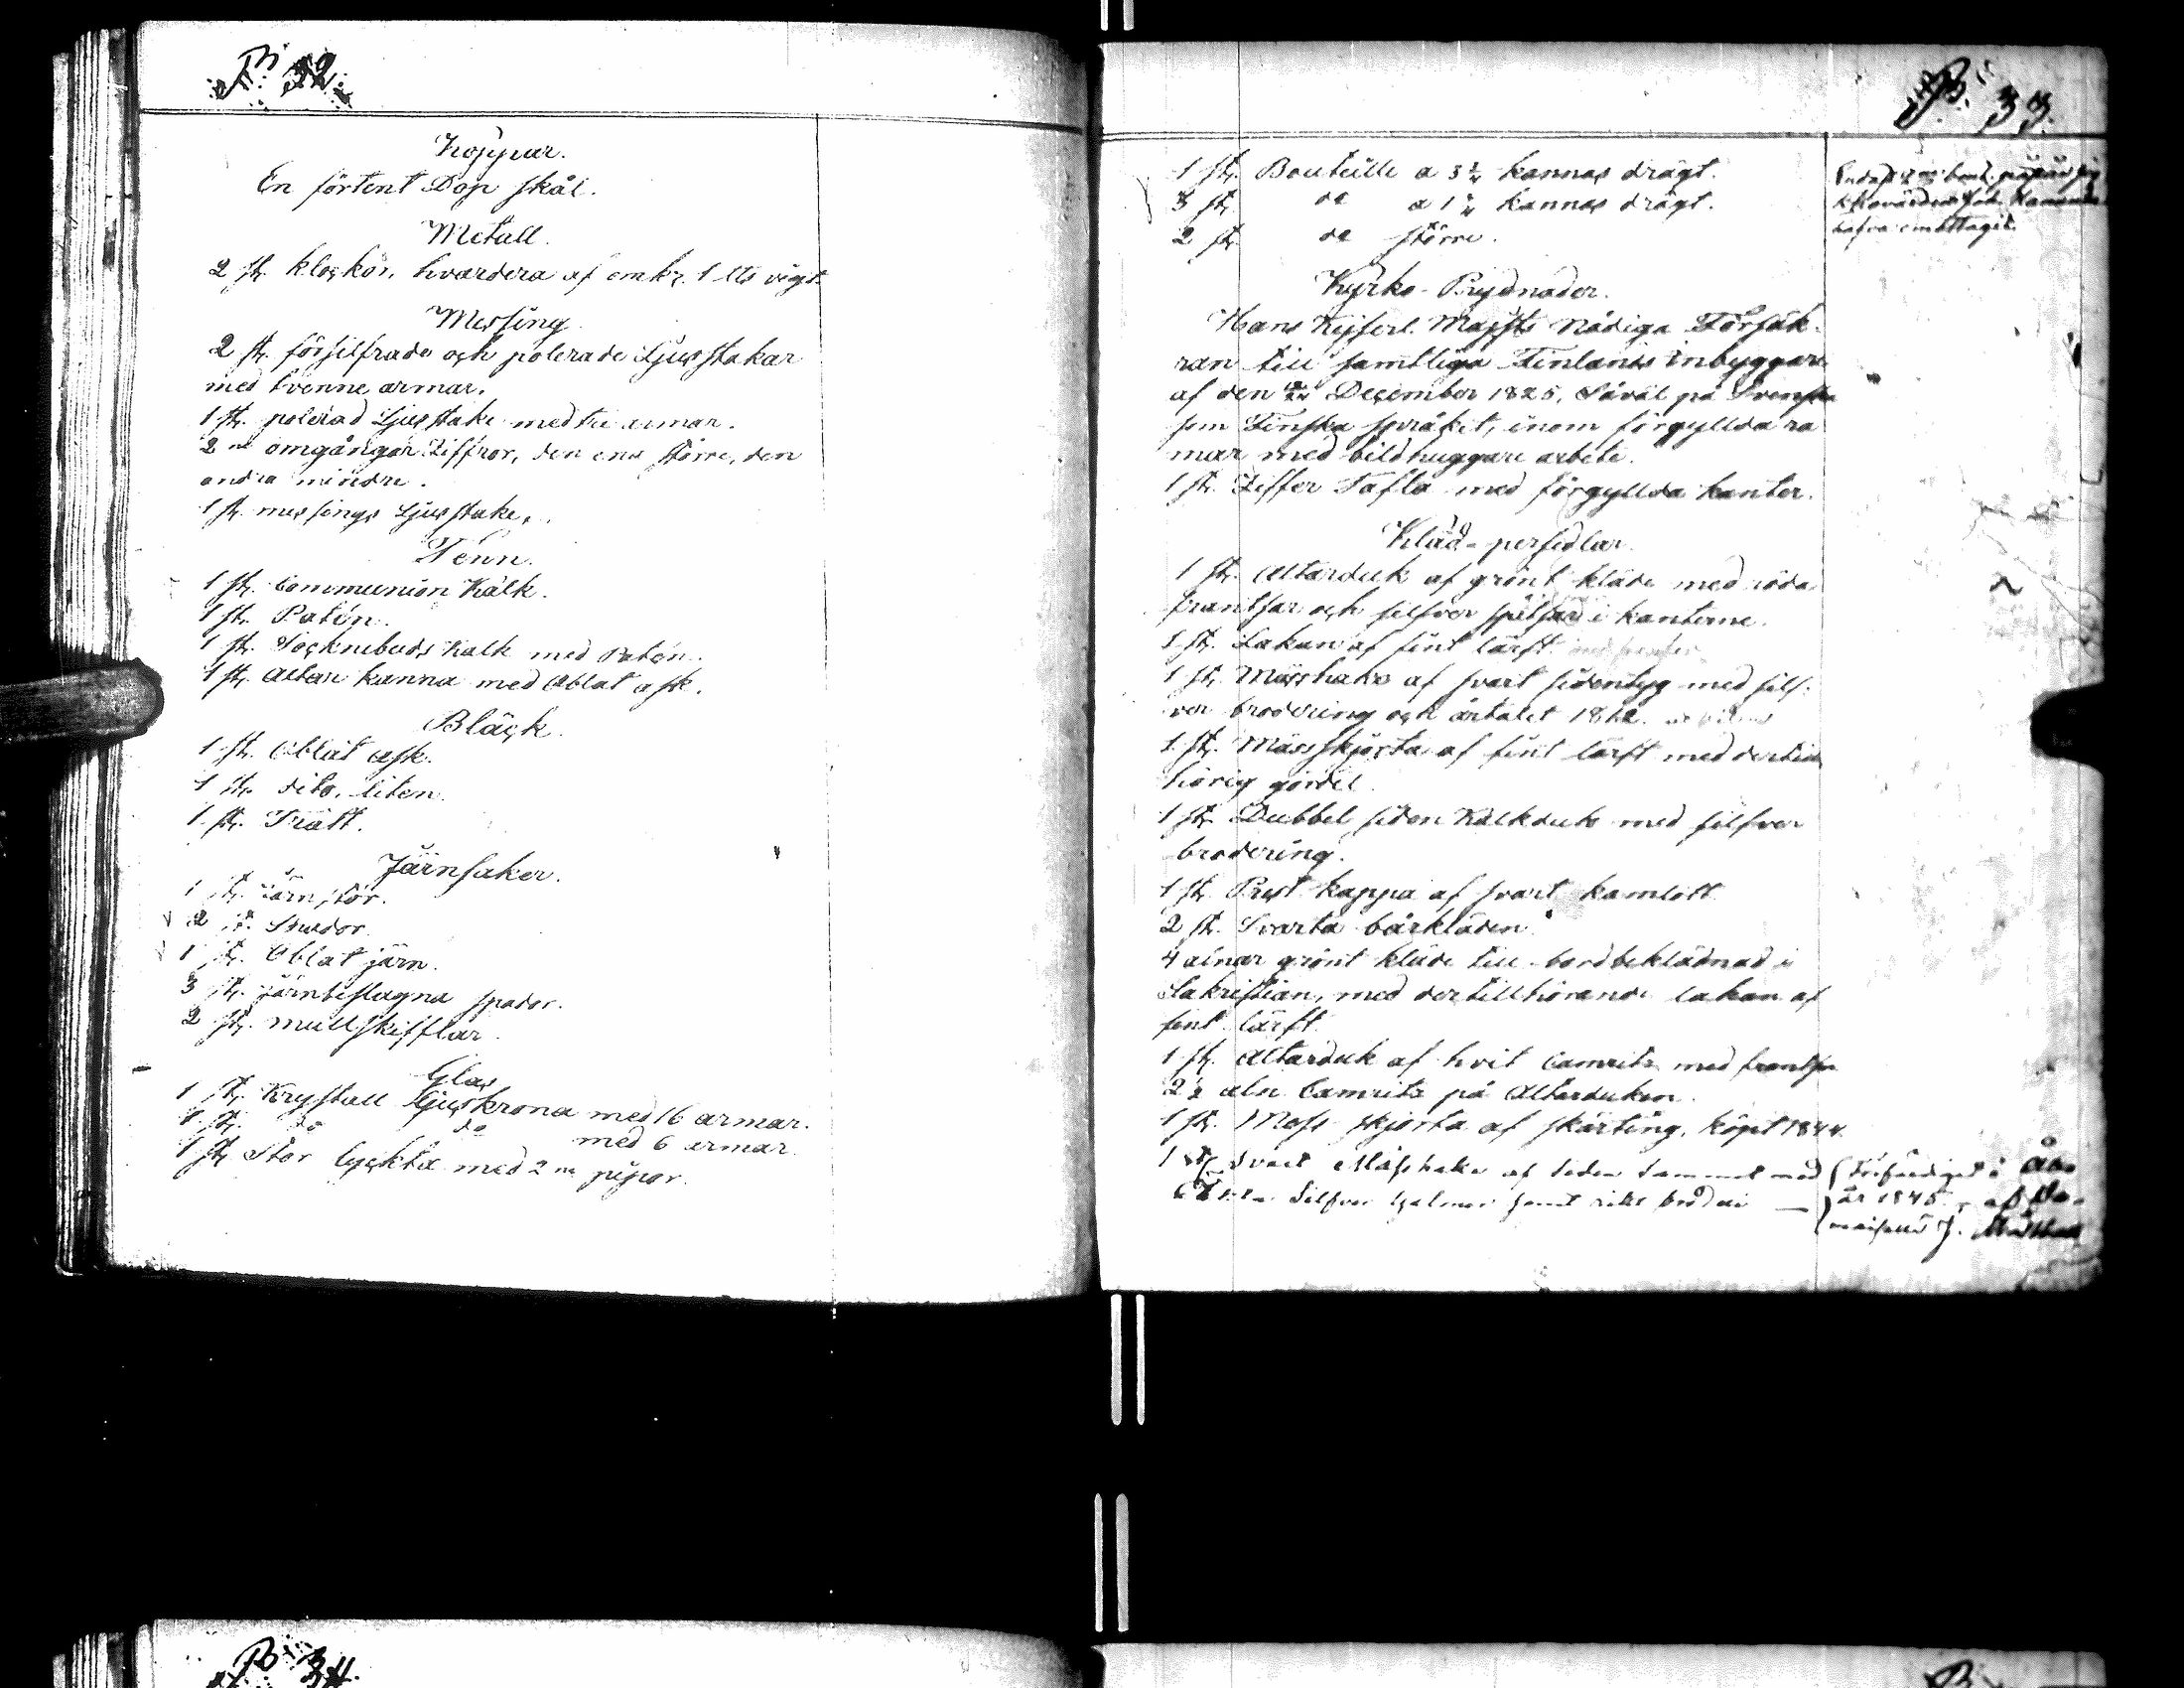 B. 32.
Koppar.
En förtent Dop skål.
Metall.
2 st. klockor, hvardera af omkr. 1 vigt
Messing
2 st. försilfrade och polerade Ljusstakar
med tvenne armar.
1 st. polerad Ljusstake med tre armar.
2ne omgångar Ziffror, den ena större, den
andra mindre.
1 st. messings Ljusstake.
Tenn.
1 st. Communion Kalk.
1 st. Patén.
1 st. Socknebuds Kalk med Patén.
1 st. Altar kanna med Oblat ask.
Bläck.
1 st. Oblat ask.
1 st. dito, liten.
1 st. Tratt.
Järnsaker.
1 st. Järnstör.
2 st.
1 st. Oblat järn.
3 st. järnbeslagna spador.
2 st. mullskifflar.
Glas
1 st. Krystall Ljuskrona med 16 armar.
1 st. do do med 6 armar.
1 st. Stor lyckta med 2ne pipor.
B. 33.
1 st. Bouteille a 3 1/4 kannas drägt.
3 st. do a 1 kannas drägt.
2 st. do större.
hafva emottagit.
Kyrko-Prydnader.
Hans Kejserl. Majsts Nådiga Försäk-
ran till samtlige Finlands inbyggare
af den December 1825, Såväl på Svenska
som Finska språket, inom förgyllda ra
mar med bildhuggare arbete.
1 st. Ziffer Tafla med förgyllda kanter.
Kläd-persedlar.
1 st. Altarduk af grönt kläde med röda
frantsar och silfver spetsar i kanterne.
1 st. Lakan af fint lärft
1 st. Messhake af svart sidentyg med silf-
ver brodering och årtalet 1812.
1 st. Mässskjorta af fint lärft med dertill
hörig gördel.
1 st. Dubbel siden Kalkduk med silfver
brodering.
1 st. Prest kappa af svart kamlott
2 st. Svarta bårkläden
4 alnar grönt kläde till bordbeklädnad i
Sakristian, med dertillhörande lakan af
fint lärft.
1 st. Altarduk af hvit Camrits med frantsar
2 1/2 aln Camrits på Altarduken.
1 st. Mess skjorta af skärting, köpt 1844.
1 st. Svart Mässhake af siden Sammet med
Silfver galoner samt rikt broderi
Förfärdigad i Åbo
år 1845 af
B. 34.
B.